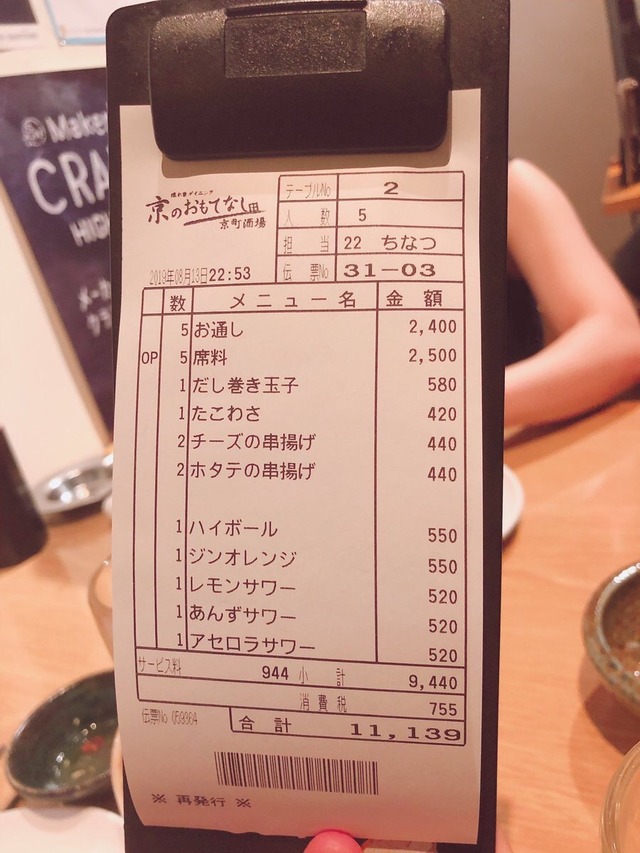 Make
CRA
HIGH
メーカ
クラ
隠れ家ダイニング
京のおもてなし
京町酒場
テーブルNo 2
人数 5
担当 22 ちなつ
伝票No 31-03
2019年08月13日22:53
数 メニュー名 金額
5 お通し 2,400
OP 5 席料 2,500
1 だし巻き玉子 580
1 たこわさ 420
2 チーズの串揚げ 440
2 ホタテの串揚げ 440
1 ハイボール 550
1 ジンオレンジ 550
1 レモンサワー 520
1 あんずサワー 520
1 アセロラサワー 520
サービス料 944 小計 9,440
消費税 755
伝票No 059364 合計 11,139
※ 再発行 ※